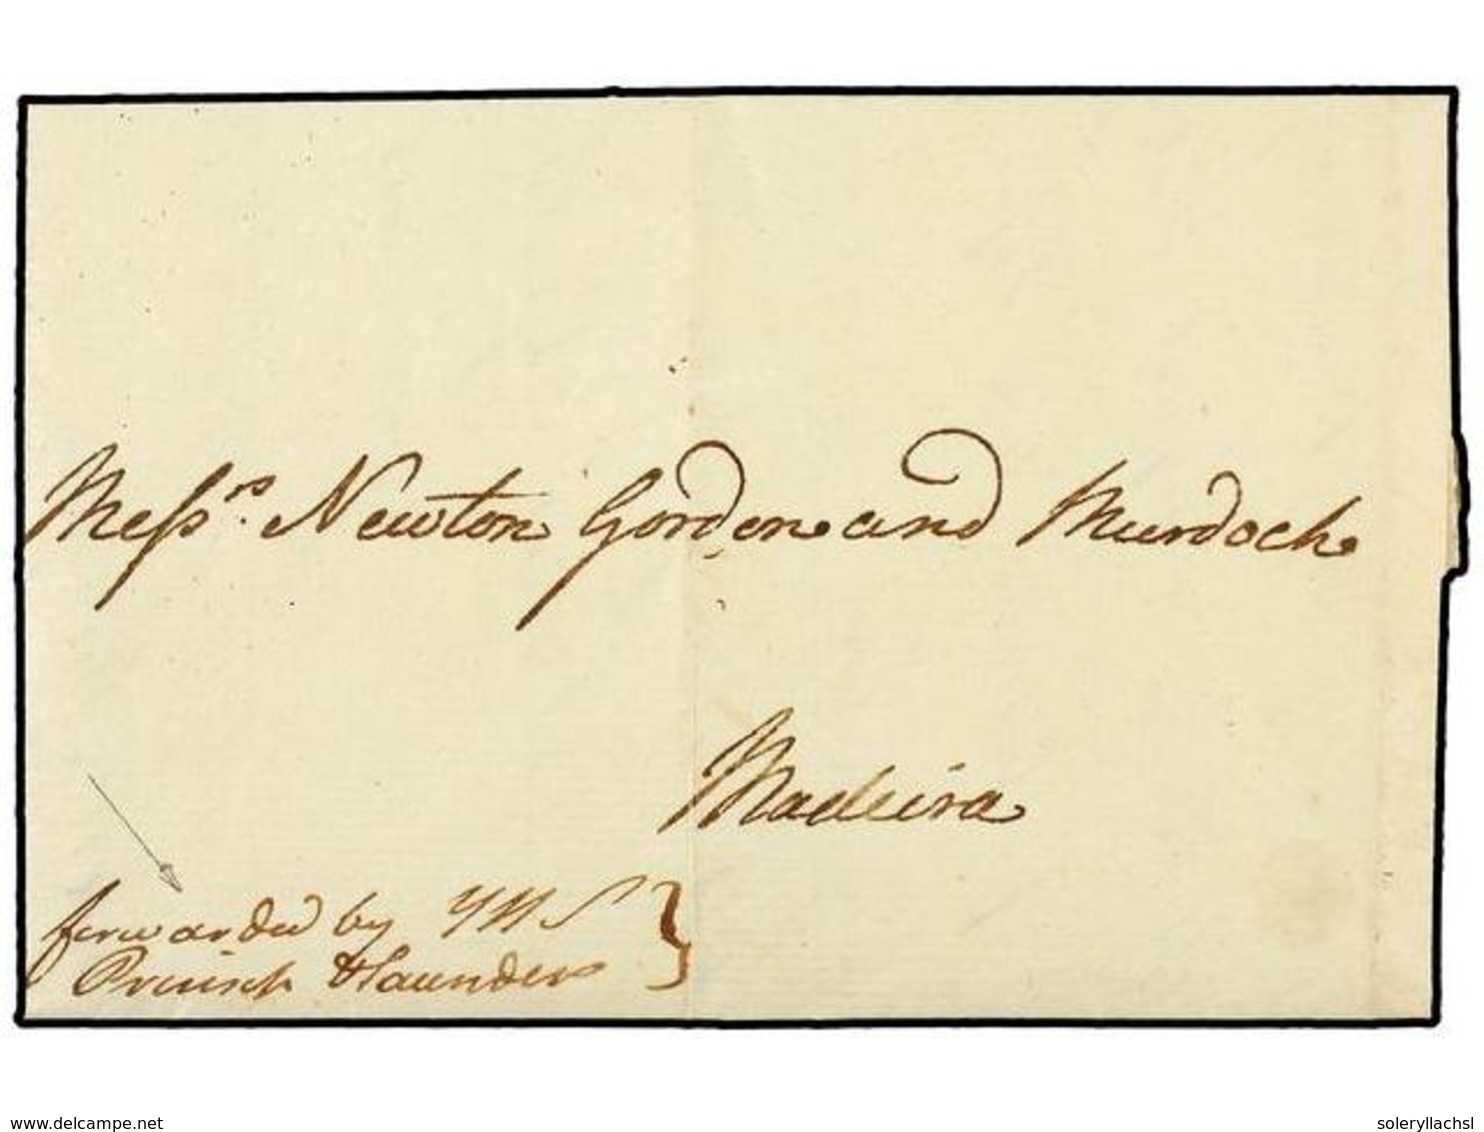 Messrs. Newton Gordon and Murdoch
Madeira
forwarded by
& Saunders
delcampe.net
soleryllachsl